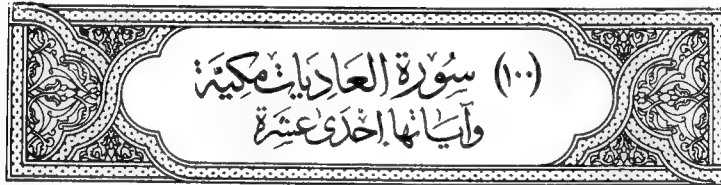 (١٠٠) سُورَة العَاديَات مَكيَّة
وَآيَاتها إحْدَى عَشَرة